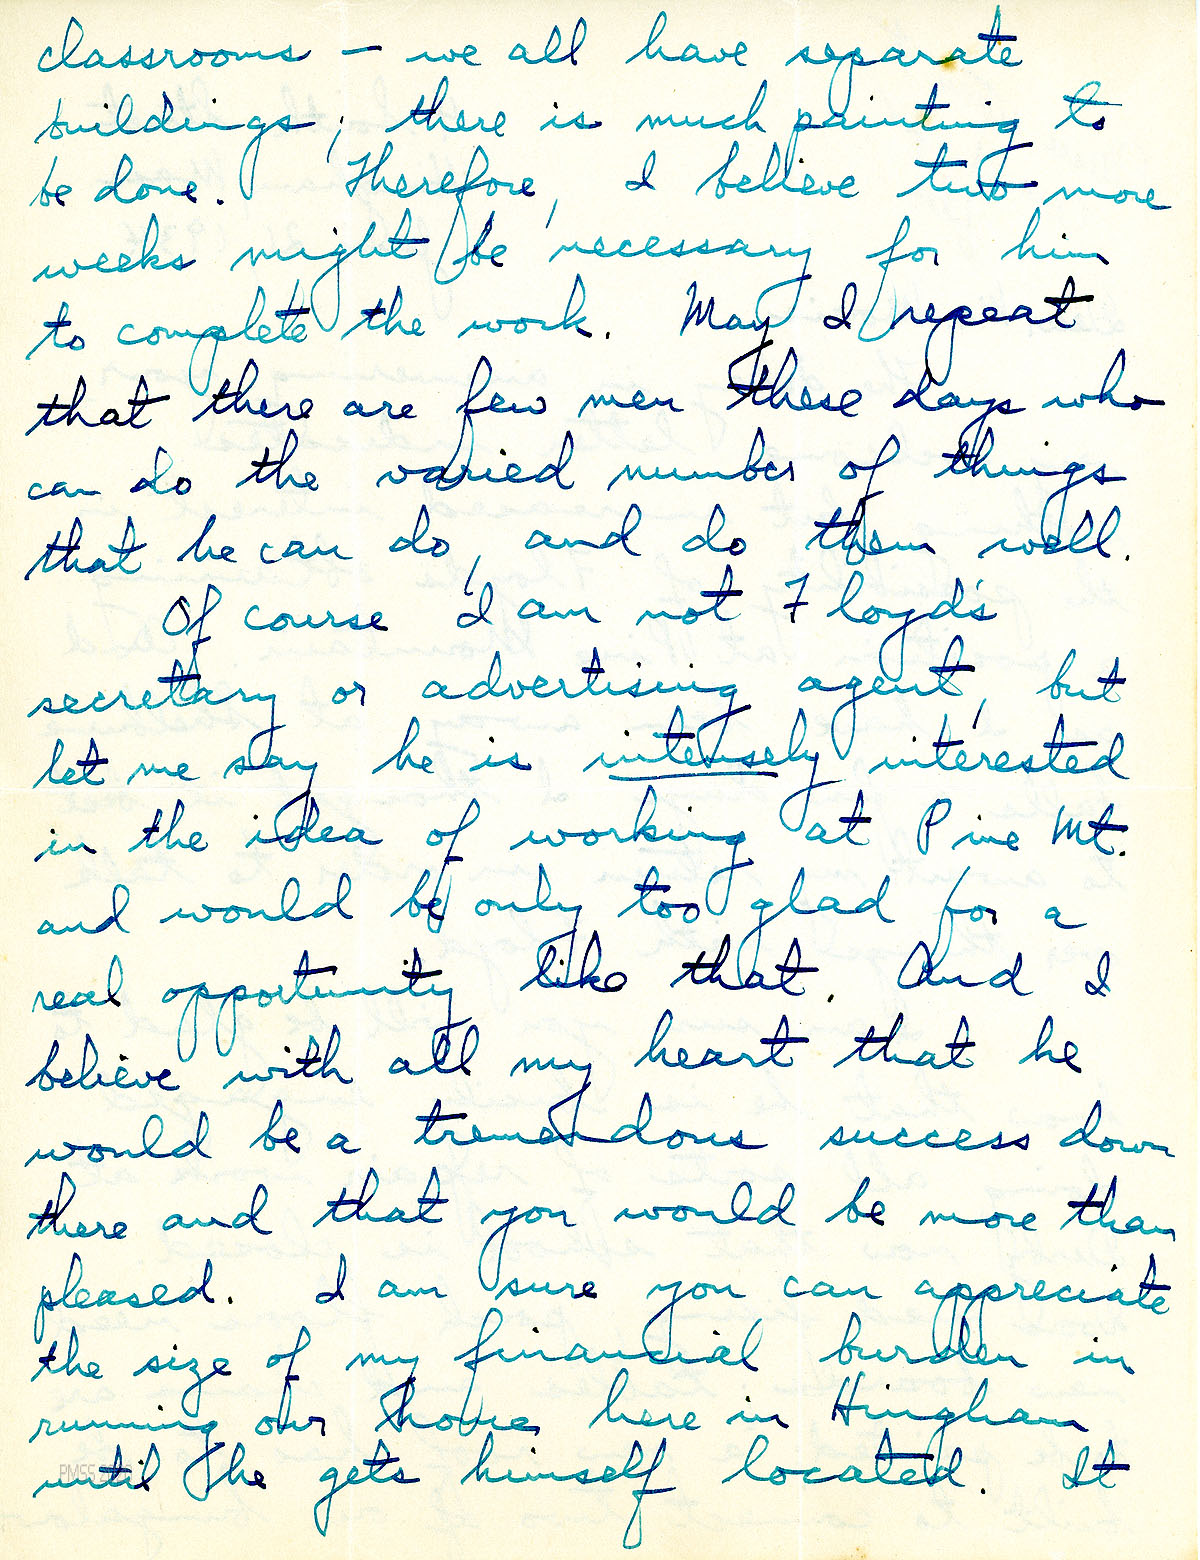 classrooms — we all have separate
buildings; there is much painting to
be done. Therefore, I believe two more
weeks might be necessary for him
to complete the work. May I repeat
that there are few men these days who
can do the varied number of things
that he can do, and do them well.
Of course I am not Floyd's
secretary or advertising agent, but
let me say he is intensely interested
in the idea of working at Pine Mt.
and would be only too glad for a
real opportunity like that. And I
believe with all my heart that he
would be a tremendous success down
there and that you would be more than
pleased. I am sure you can appreciate
the size of my financial burden in
running our home here in Hingham
until he gets himself located. It
PMSS